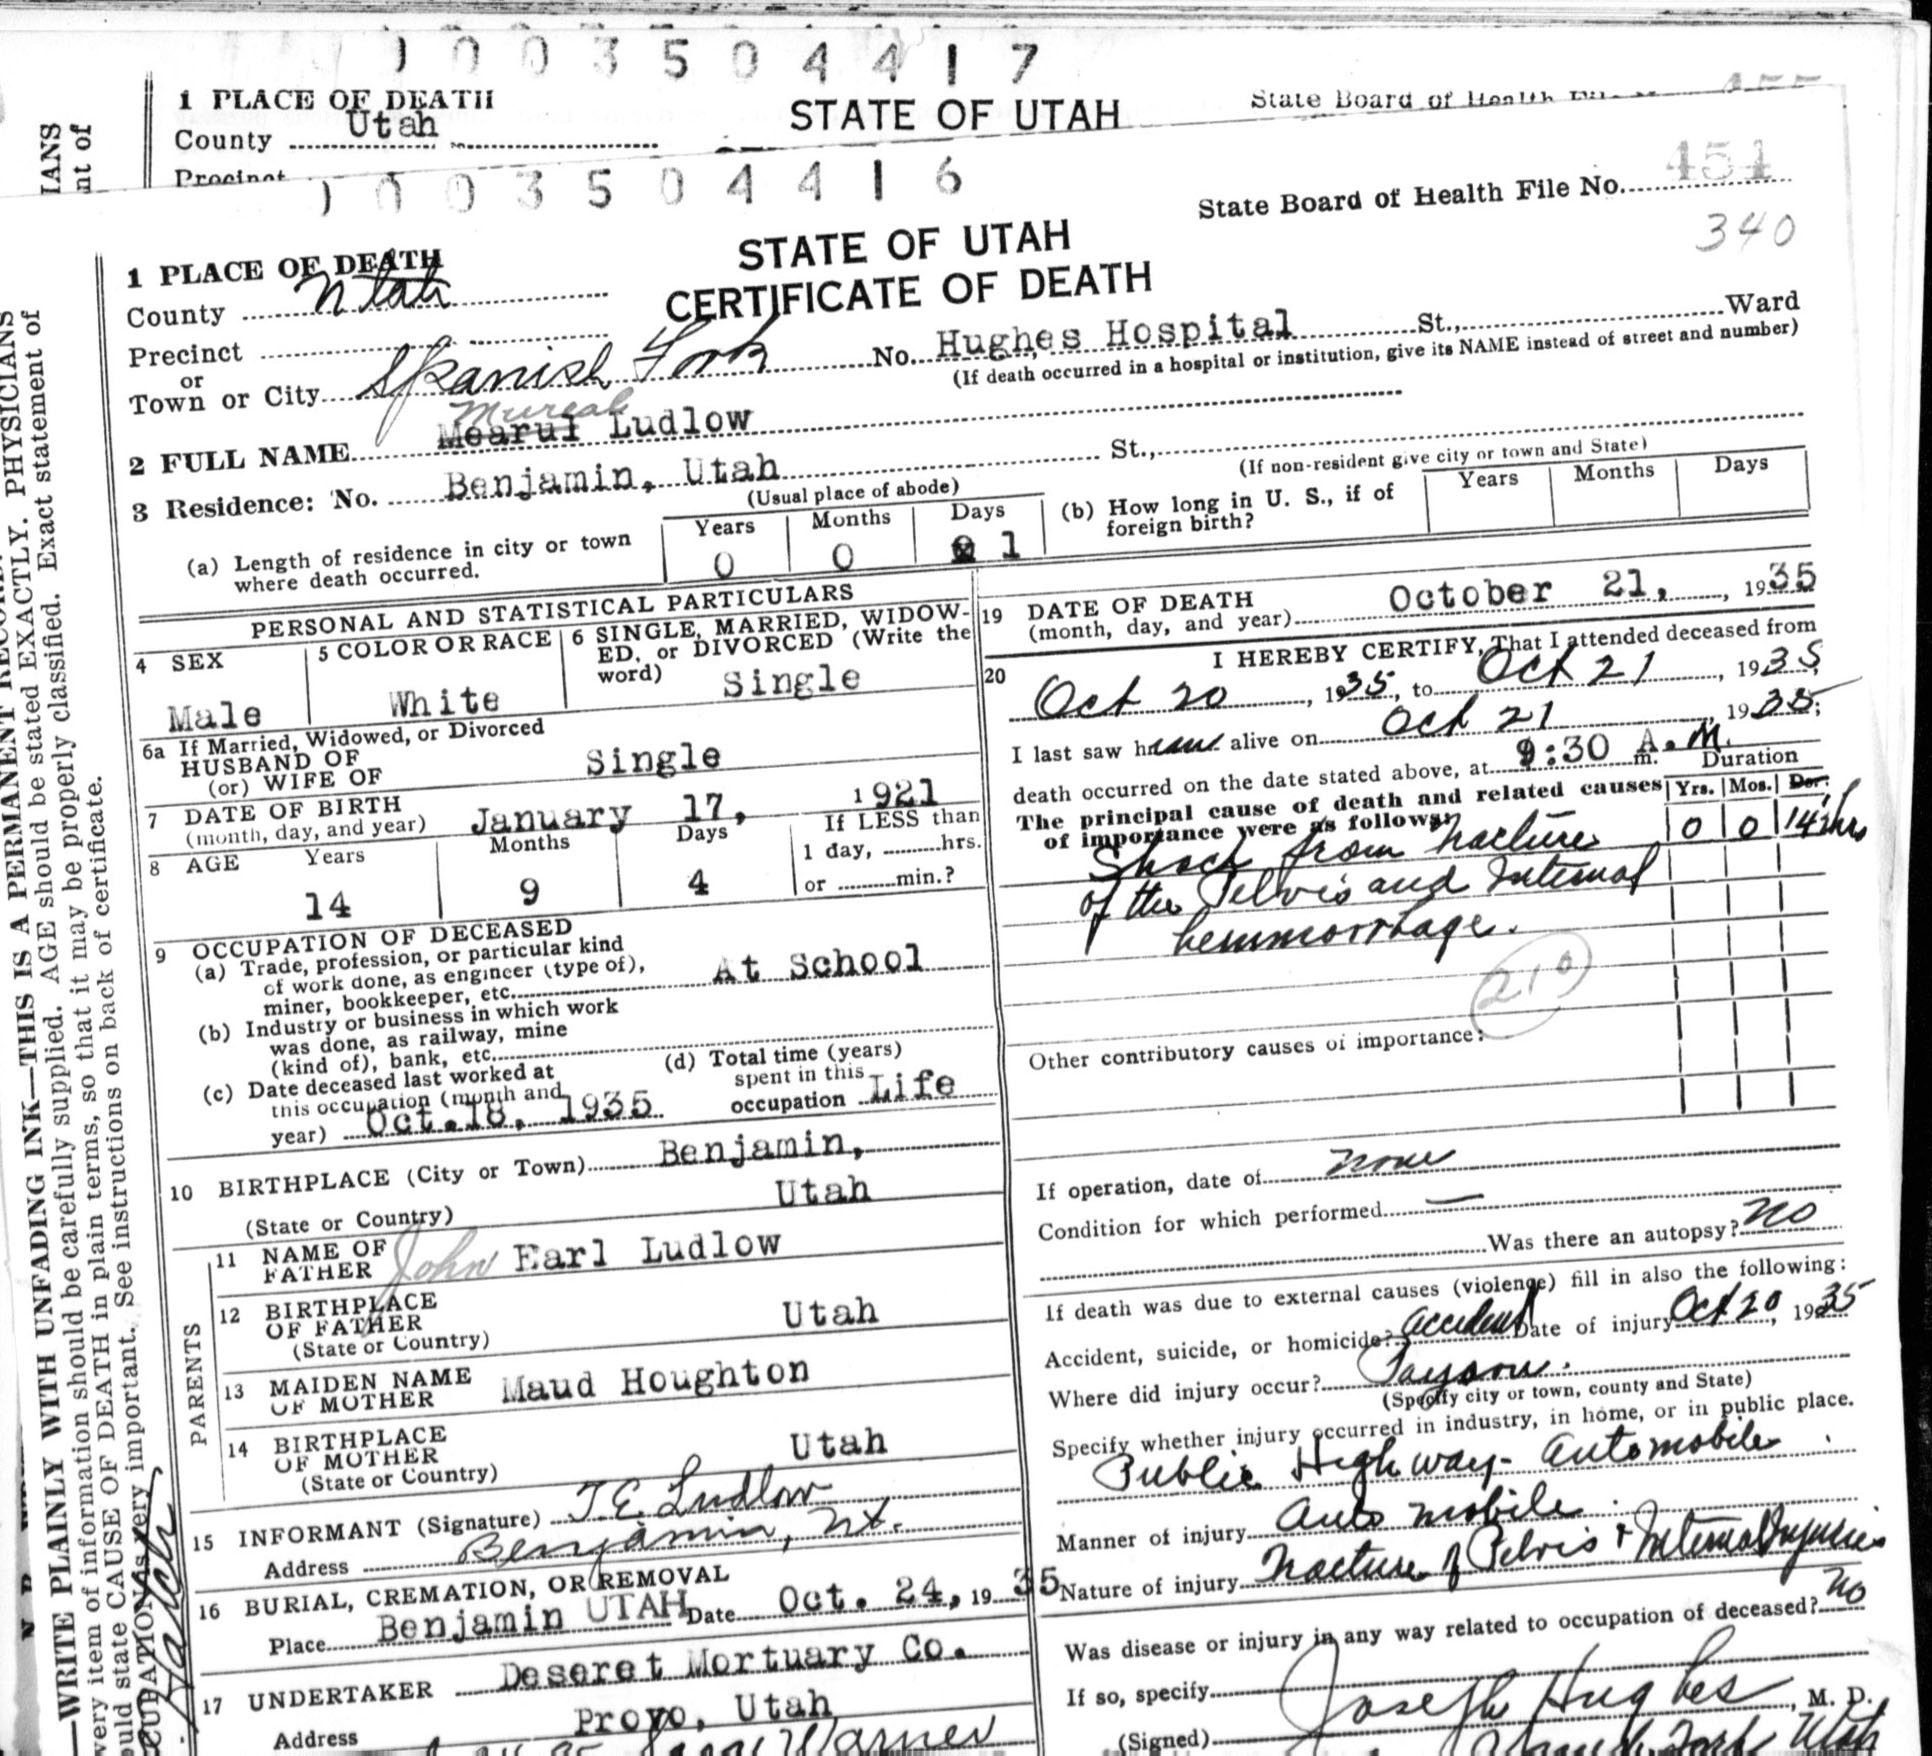 0 0 3 5 0 4 4 1 7
1 PLACE OF DEATH
County Utah
STATE OF UTAH
State Board of Health File
Precinct
0 0 3 5 0 4 4 1 6
State Board of Health File No. 451
340
STATE OF UTAH
CERTIFICATE OF DEATH
1 PLACE OF DEATH
County Utah
Precinct
or
Town or City Spanish Fork No. Hughes Hospital St., Ward
(If death occurred in a hospital or institution, give its NAME instead of street and number)
2 FULL NAME Ludlow
3 Residence: No. Benjamin, Utah St.,
(Usual place of abode)
(If non-resident give city or town and State)
(a) Length of residence in city or town where death occurred. Years 0 Months 0 Days 1
(b) How long in U. S., if of foreign birth? Years Months Days
PERSONAL AND STATISTICAL PARTICULARS
4 SEX
Male
5 COLOR OR RACE
White
6 SINGLE, MARRIED, WIDOW-
ED, or DIVORCED (Write the
word) Single
6a If Married, Widowed, or Divorced
HUSBAND OF
(or) WIFE OF Single
7 DATE OF BIRTH
(month, day, and year) January 17, 1921
8 AGE Years Months Days If LESS than
1 day, hrs.
14 9 4 or min.?
9 OCCUPATION OF DECEASED
(a) Trade, profession, or particular kind
of work done, as engineer (type of),
miner, bookkeeper, etc. At School
(b) Industry or business in which work
was done, as railway, mine
(kind of), bank, etc.
(c) Date deceased last worked at
this occupation (month and
year) Oct.18, 1935
(d) Total time (years)
spent in this
occupation Life
10 BIRTHPLACE (City or Town) Benjamin,
(State or Country) Utah
PARENTS
11 NAME OF
FATHER John Earl Ludlow
12 BIRTHPLACE
OF FATHER
(State or Country) Utah
13 MAIDEN NAME
OF MOTHER Maud Houghton
14 BIRTHPLACE
OF MOTHER
(State or Country) Utah
15 INFORMANT (Signature) J.E. Ludlow
Address Benjamin, Ut.
16 BURIAL, CREMATION, OR REMOVAL
Place Benjamin UTAH Date Oct. 24, 19 35
17 UNDERTAKER Deseret Mortuary Co.
Address Provo, Utah
Warner
19 DATE OF DEATH
(month, day, and year) October 21, 1935
20 I HEREBY CERTIFY, That I attended deceased from
Oct 20, 1935, to Oct 21, 1935
I last saw him alive on Oct 21, 1935;
death occurred on the date stated above, at 9:30 A.M. m.
The principal cause of death and related causes
of importance were as follows:
Duration
Yrs. Mos.
0 0
Shock from fracture
of the Pelvis and Internal
hemmorrhage.
210
Other contributory causes of importance:
If operation, date of none
Condition for which performed —
Was there an autopsy? No
If death was due to external causes (violence) fill in also the following:
Accident, suicide, or homicide? accident Date of injury Oct 20, 1935
Where did injury occur? Payson.
(Specify city or town, county and State)
Specify whether injury occurred in industry, in home, or in public place.
Public Highway - Automobile
Manner of injury Auto mobile
Nature of injury Fracture of Pelvis + Internal Injuries
Was disease or injury in any way related to occupation of deceased? No
If so, specify
(Signed) Joseph Hughes, M. D.
Spanish Fork Utah
WRITE PLAINLY WITH UNFADING INK—THIS IS A PERMANENT RECORD.
very item of information should be carefully supplied. AGE should be stated EXACTLY. PHYSICIANS
ould state CAUSE OF DEATH in plain terms, so that it may be properly classified. Exact statement of
CCUPATION is very important. See instructions on back of certificate.
IANS
nt of